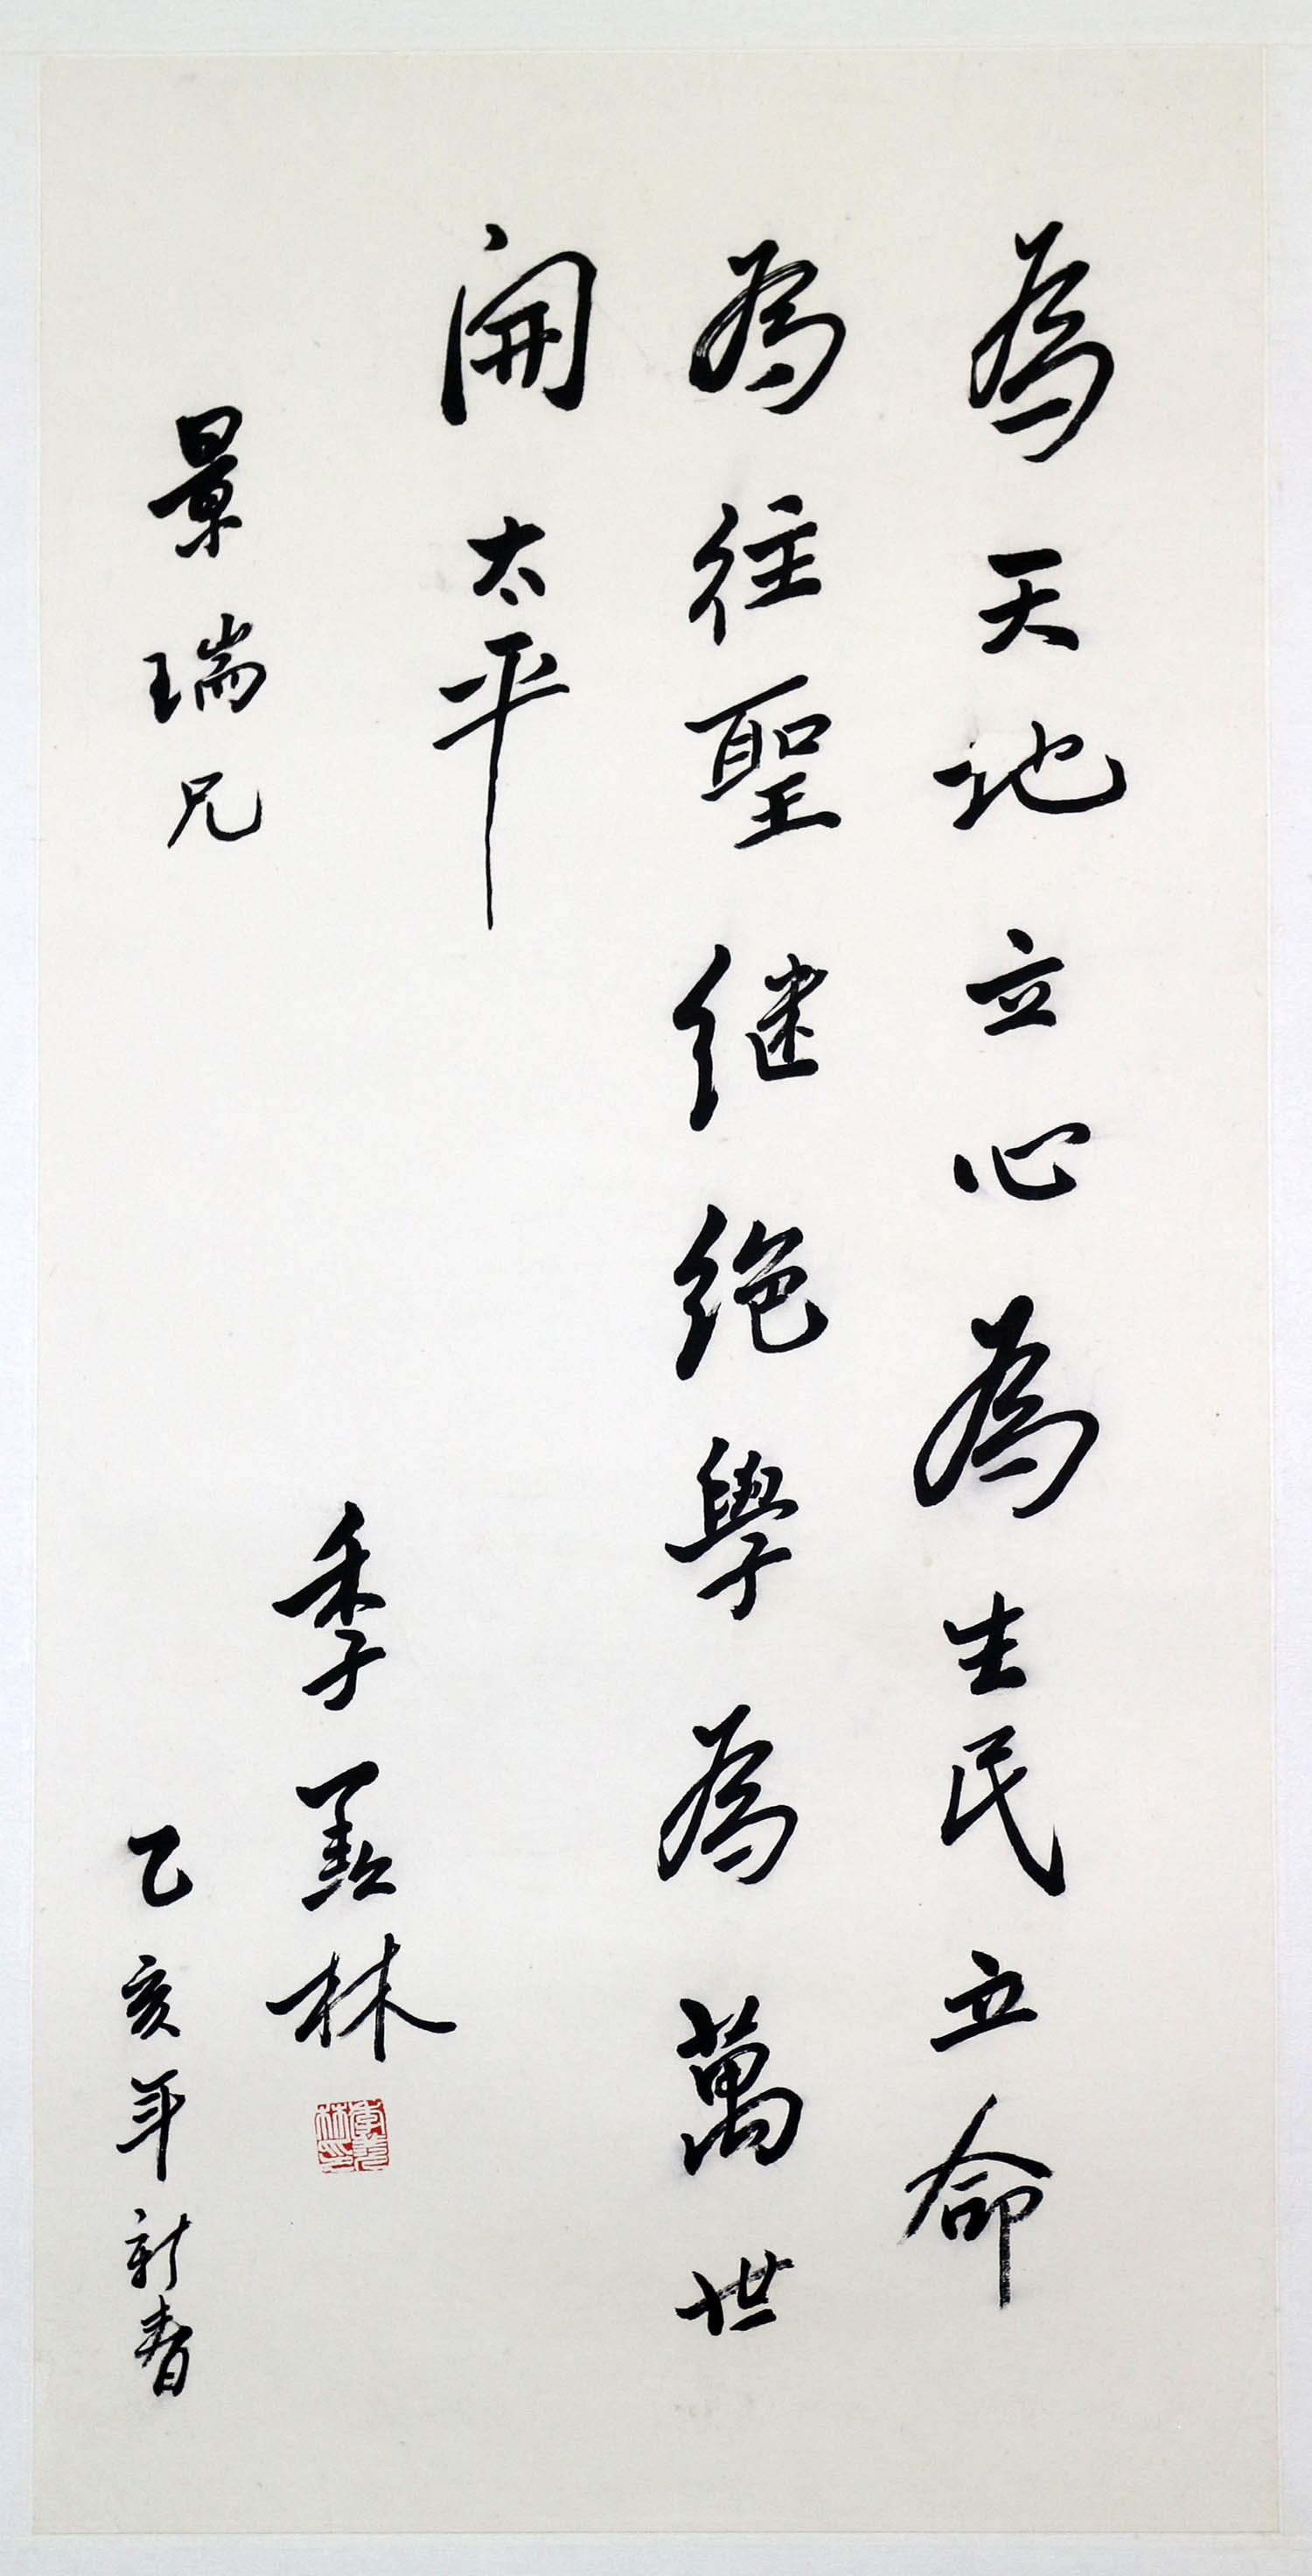 為天地立心為生民立命
為往聖继絶學為萬世
開太平
季羡林
景瑞兄
乙亥年新春
季羡林印